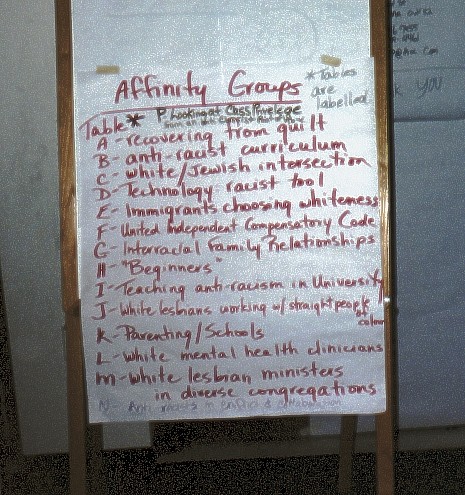 Affinity Groups
* Tables
are
labelled
Table * P Looking at Class Privelege
A - recovering from guilt
B - anti-racist curriculum
C - white/Jewish intersection
D - Technology racist tool
E - Immigrants choosing whiteness
F - United Independent Compensatory Code
G - Interracial Family Relationships
H - "Beginners"
I - Teaching anti-racism in University
J - White lesbians working w/ straight people
of
colour
K - Parenting/Schools
L - white mental health clinicians
M - white lesbian ministers
in diverse congregations
N -
YOU